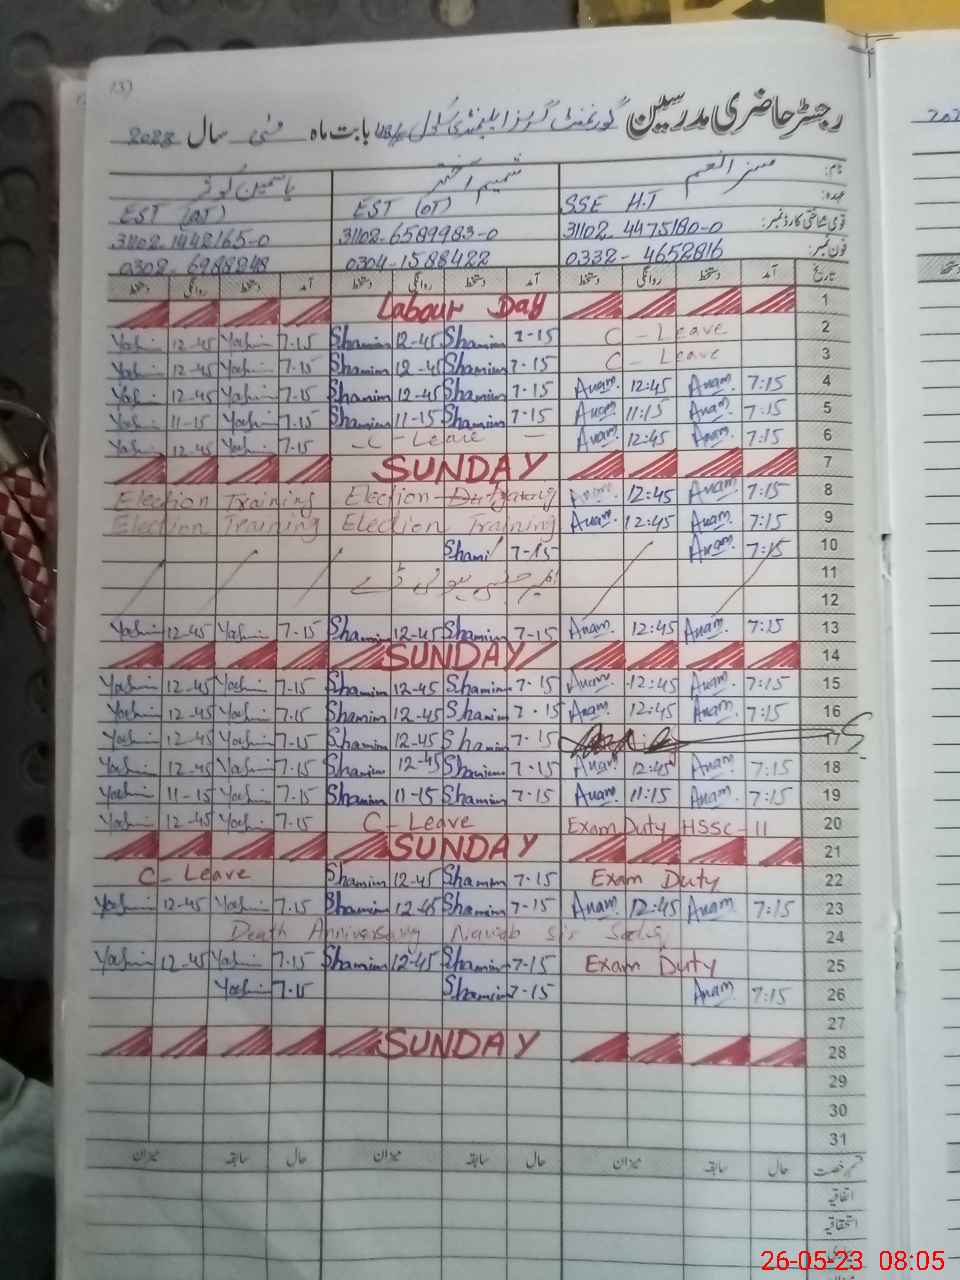 (3)
رجسٹر حاضری مدرسین گورنمنٹ گرلز ایلیمنٹری سکول بابت ماہ مئی سال 2023
نام: مسز انعم شمیم اختر یاسمین کوثر
عہدہ: SSE H.T EST (OT) EST (AT)
قومی شناختی کارڈ نمبر: 31102-4475180-0 31102-6589983-0 31102-1442165-0
فون نمبر: 0332-4652816 0304-1588422 0302-6988248
تاریخ آمد دستخط روانگی دستخط آمد دستخط روانگی دستخط آمد دستخط روانگی دستخط
Labour Day 1
Yasmin 12-45 Yasmin 7-15 Shamim 12-45 Shamim 7-15 C-Leave 2
Yasmin 12-45 Yasmin 7-15 Shamim 12-45 Shamim 7-15 C-Leave 3
Yasmin 12-45 Yasmin 7-15 Shamim 12-45 Shamim 7-15 Anam. 12:45 Anam. 7:15 4
Yasmin 11-15 Yasmin 7-15 Shamim 11-15 Shamim 7-15 Anam. 11:15 Anam. 7:15 5
Yasmin 12-45 Yasmin 7-15 -C-Leave - Anam. 12:45 Anam. 7:15 6
SUNDAY 7
Election Training Election Training Anam. 12:45 Anam. 7:15 8
Election Training Election Training Anam. 12:45 Anam. 7:15 9
Shami 7-15 Anam. 7:15 10
11
12
Yasmin 12-45 Yasmin 7-15 Shamim 12-45 Shamim 7-15 Anam. 12:45 Anam. 7:15 13
SUNDAY 14
Yasmin 12-45 Yasmin 7-15 Shamim 12-45 Shamim 7-15 Anam. 12:45 Anam. 7:15 15
Yasmin 12-45 Yasmin 7-15 Shamim 12-45 Shamim 7-15 Anam. 12:45 Anam. 7:15 16
Yasmin 12-45 Yasmin 7-15 Shamim 12-45 Shamim 7-15 17
Yasmin 12-45 Yasmin 7-15 Shamim 12-45 Shamim 7-15 Anam. 12:45 Anam. 7:15 18
Yasmin 11-15 Yasmin 7-15 Shamim 11-15 Shamim 7-15 Anam. 11:15 Anam. 7:15 19
Yasmin 12-45 Yasmin 7-15 C-Leave Exam Duty HSSC-II 20
SUNDAY 21
C-Leave Shamim 12-45 Shamim 7-15 Exam Duty 22
Yasmin 12-45 Yasmin 7-15 Shamim 12-45 Shamim 7-15 Anam. 12:45 Anam. 7:15 23
Death Anniversary Nawab sir Sadiq 24
Yasmin 12-45 Yasmin 7-15 Shamim 12-45 Shamim 7-15 Exam Duty 25
Yasmin 7-15 Shamim 7-15 Anam. 7:15 26
27
SUNDAY 28
29
30
31
قسم رخصت حال سابقہ میزان حال سابقہ میزان حال سابقہ میزان
اتفاقیہ
استحقاقیہ
26-05-23 08:05